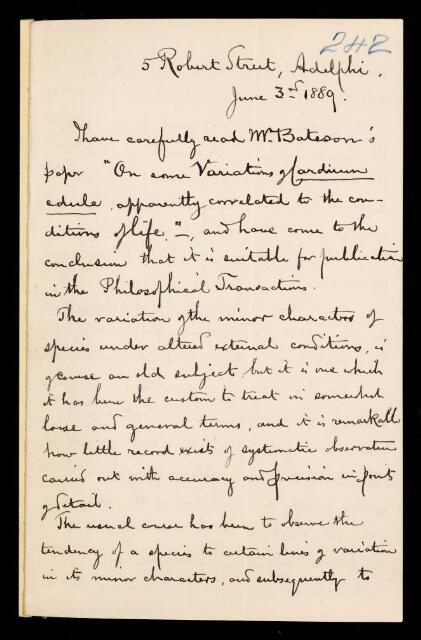 242
5 Robert Street, Adelphi.
June 3rd 1889.
I have carefully read Mr. Bateson's
paper "On some Variations of Cardium
edule, apparently correlated to the con-
ditions of life."—, and have come to the
conclusion that it is suitable for publication
in the Philosophical Transactions.
The variation of the minor characters of
species under altered external conditions, is
of course an old subject, but it is one which
it has been the custom to treat in somewhat
loose and general terms, and it is remarkable
how little record exists of systematic observation
carried out with accuracy and precision in points
of detail.
The usual course has been to observe the
tendency of a species to certain lines of variation
in its minor characters, and subsequently to